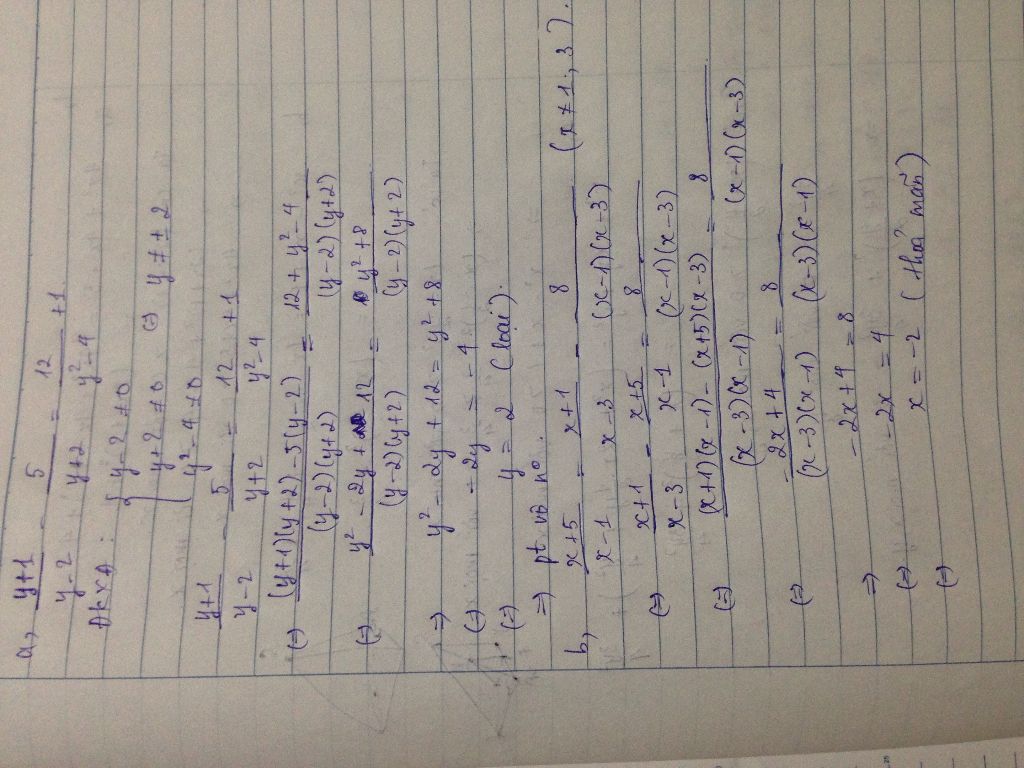 a, (y+1)/(y-2) - 5/(y+2) = 12/(y²-4) + 1
ĐKXĐ: { y-2 ≠ 0
y+2 ≠ 0 (=) y ≠ ± 2
y²-4 ≠ 0
(y+1)/(y-2) - 5/(y+2) = 12/(y²-4) + 1
(=) ((y+1)(y+2)-5(y-2))/((y-2)(y+2)) = (12+y²-4)/((y-2)(y+2))
(=) (y²-2y+12)/((y-2)(y+2)) = (y²+8)/((y-2)(y+2))
=) y²-2y+12 = y²+8
(=) -2y = -4
(=) y = 2 (loại).
=) pt vô n⁰.
b, (x+5)/(x-1) = (x+1)/(x-3) - 8/((x-1)(x-3)) (x ≠ 1, 3).
(=) (x+1)/(x-3) - (x+5)/(x-1) = 8/((x-1)(x-3))
(=) ((x+1)(x-1)-(x+5)(x-3))/((x-3)(x-1)) = 8/((x-1)(x-3))
(=) (-2x+4)/((x-3)(x-1)) = 8/((x-3)(x-1))
=) -2x+4 = 8
(=) -2x = 4
(=) x = -2 (thoả mãn)